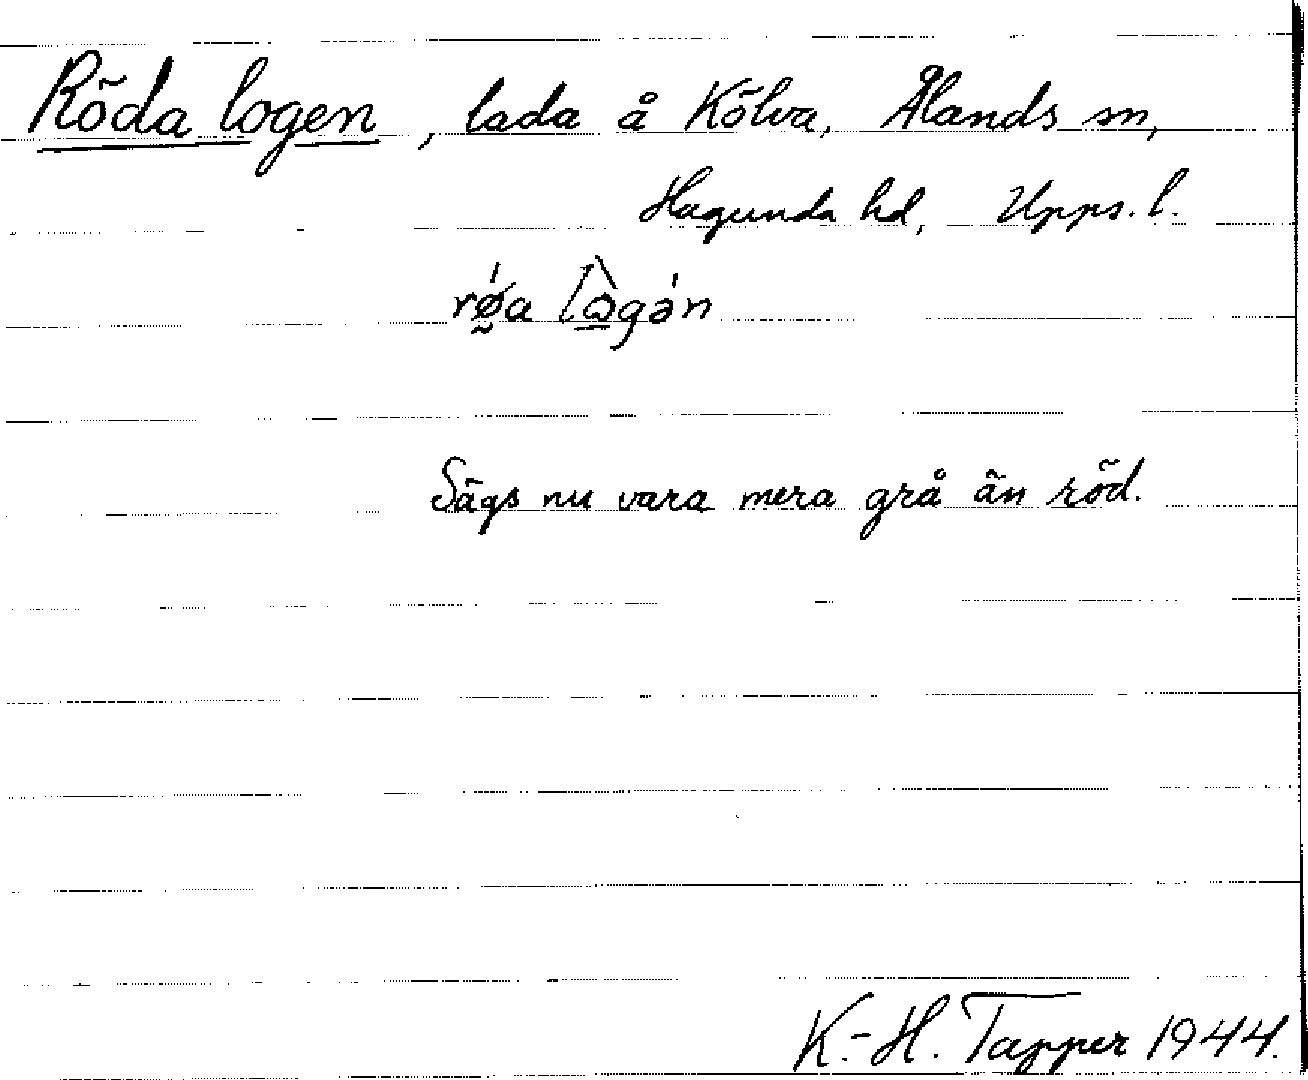 Röda logen, lada å Kölva, Ålands sn,
Hagunda hd, Upps. l.
rǿ̰a lò̱gə́n
Sägs nu vara mera grå än röd.
K.-H. Tapper 1944.